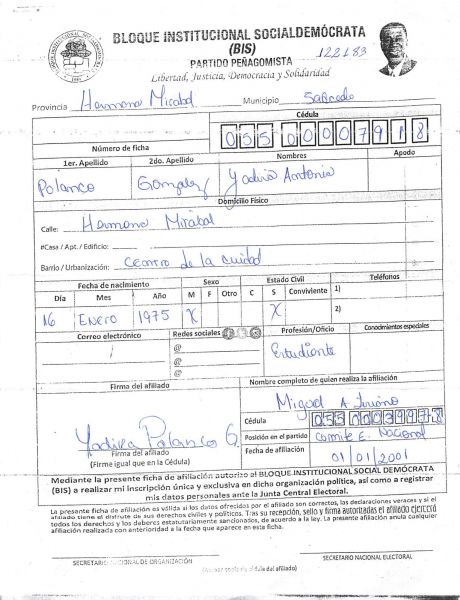 BLOQUE INSTITUCIONAL SOCIALDEMÓCRATA
(BIS)
122183
PARTIDO PEÑAGOMISTA
Libertad, Justicia, Democracia y Solidaridad
Provincia Hermana Mirabal Municipio Salcedo
Cédula
Número de ficha 055 0000791 8
1er. Apellido 2do. Apellido Nombres Apodo
Polanco Gonzalez Yadira Antonia
Domicilio Físico
Calle: Hermana Mirabal
#Casa / Apt. / Edificio:
Barrio / Urbanización: Centro de la ciudad
Fecha de nacimiento Sexo Estado Civil Teléfonos
Día Mes Año M F Otro C S Conviviente 1)
16 Enero 1975 X X 2)
Correo electrónico Redes sociales Profesión/Oficio Conocimientos especiales
@
@
@
Estudiante
Firma del afiliado Nombre completo de quien realiza la afiliación
Miguel A.
Cédula 055 0003997 8
Yadira Polanco G.
Firma del afiliado
(Firme igual que en la Cédula)
Posición en el partido Comite E. Nacional
Fecha de afiliación 01/01/2001
Mediante la presente ficha de afiliación autorizo al BLOQUE INSTITUCIONAL SOCIAL DEMÓCRATA
(BIS) a realizar mi inscripción única y exclusiva en dicha organización política, así como a registrar
mis datos personales ante la Junta Central Electoral.
La presente ficha de afiliación es válida si los datos ofrecidos por el afiliado son correctos, las declaraciones veraces y si el
afiliado tiene el disfrute de sus derechos civiles y políticos. Tras su recepción, sello y firma autorizadas el afiliado ejercerá
todos los derechos y los deberes estatutariamente sancionados, de acuerdo a la ley. La presente afiliación anula cualquier
afiliación realizada con anterioridad a la fecha que aparece en esta ficha.
SECRETARIO NACIONAL DE ORGANIZACIÓN SECRETARIO NACIONAL ELECTORAL